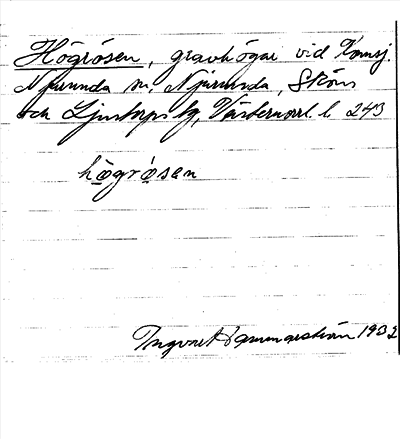 Högrösen, gravhögar vid
Njurunda sn, Njurunda, Sköns
och Ljustorps tg, Västernorrl. l. 243
högrösen
Ingvret Hammarström 1932